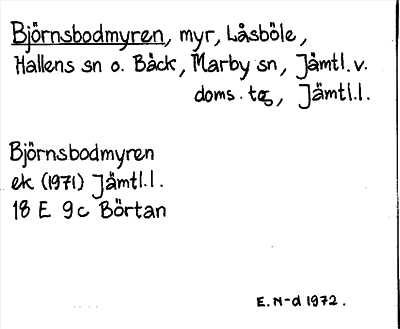 Björnsbodmyren, myr, Låsböle,
Hallens sn o. Bäck, Marby sn, Jämtl.v.
doms. tg, Jämtl.l.
Björnsbodmyren
ek (1971) Jämtl.l.
18 E 9c Börtan
E.N-d 1972.